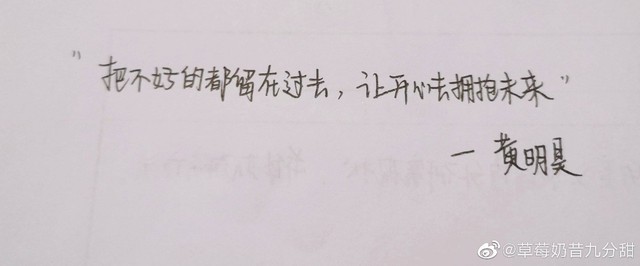 "把不好的都留在过去，让开心去拥抱未来"
一黄明昊
@草莓奶昔九分甜